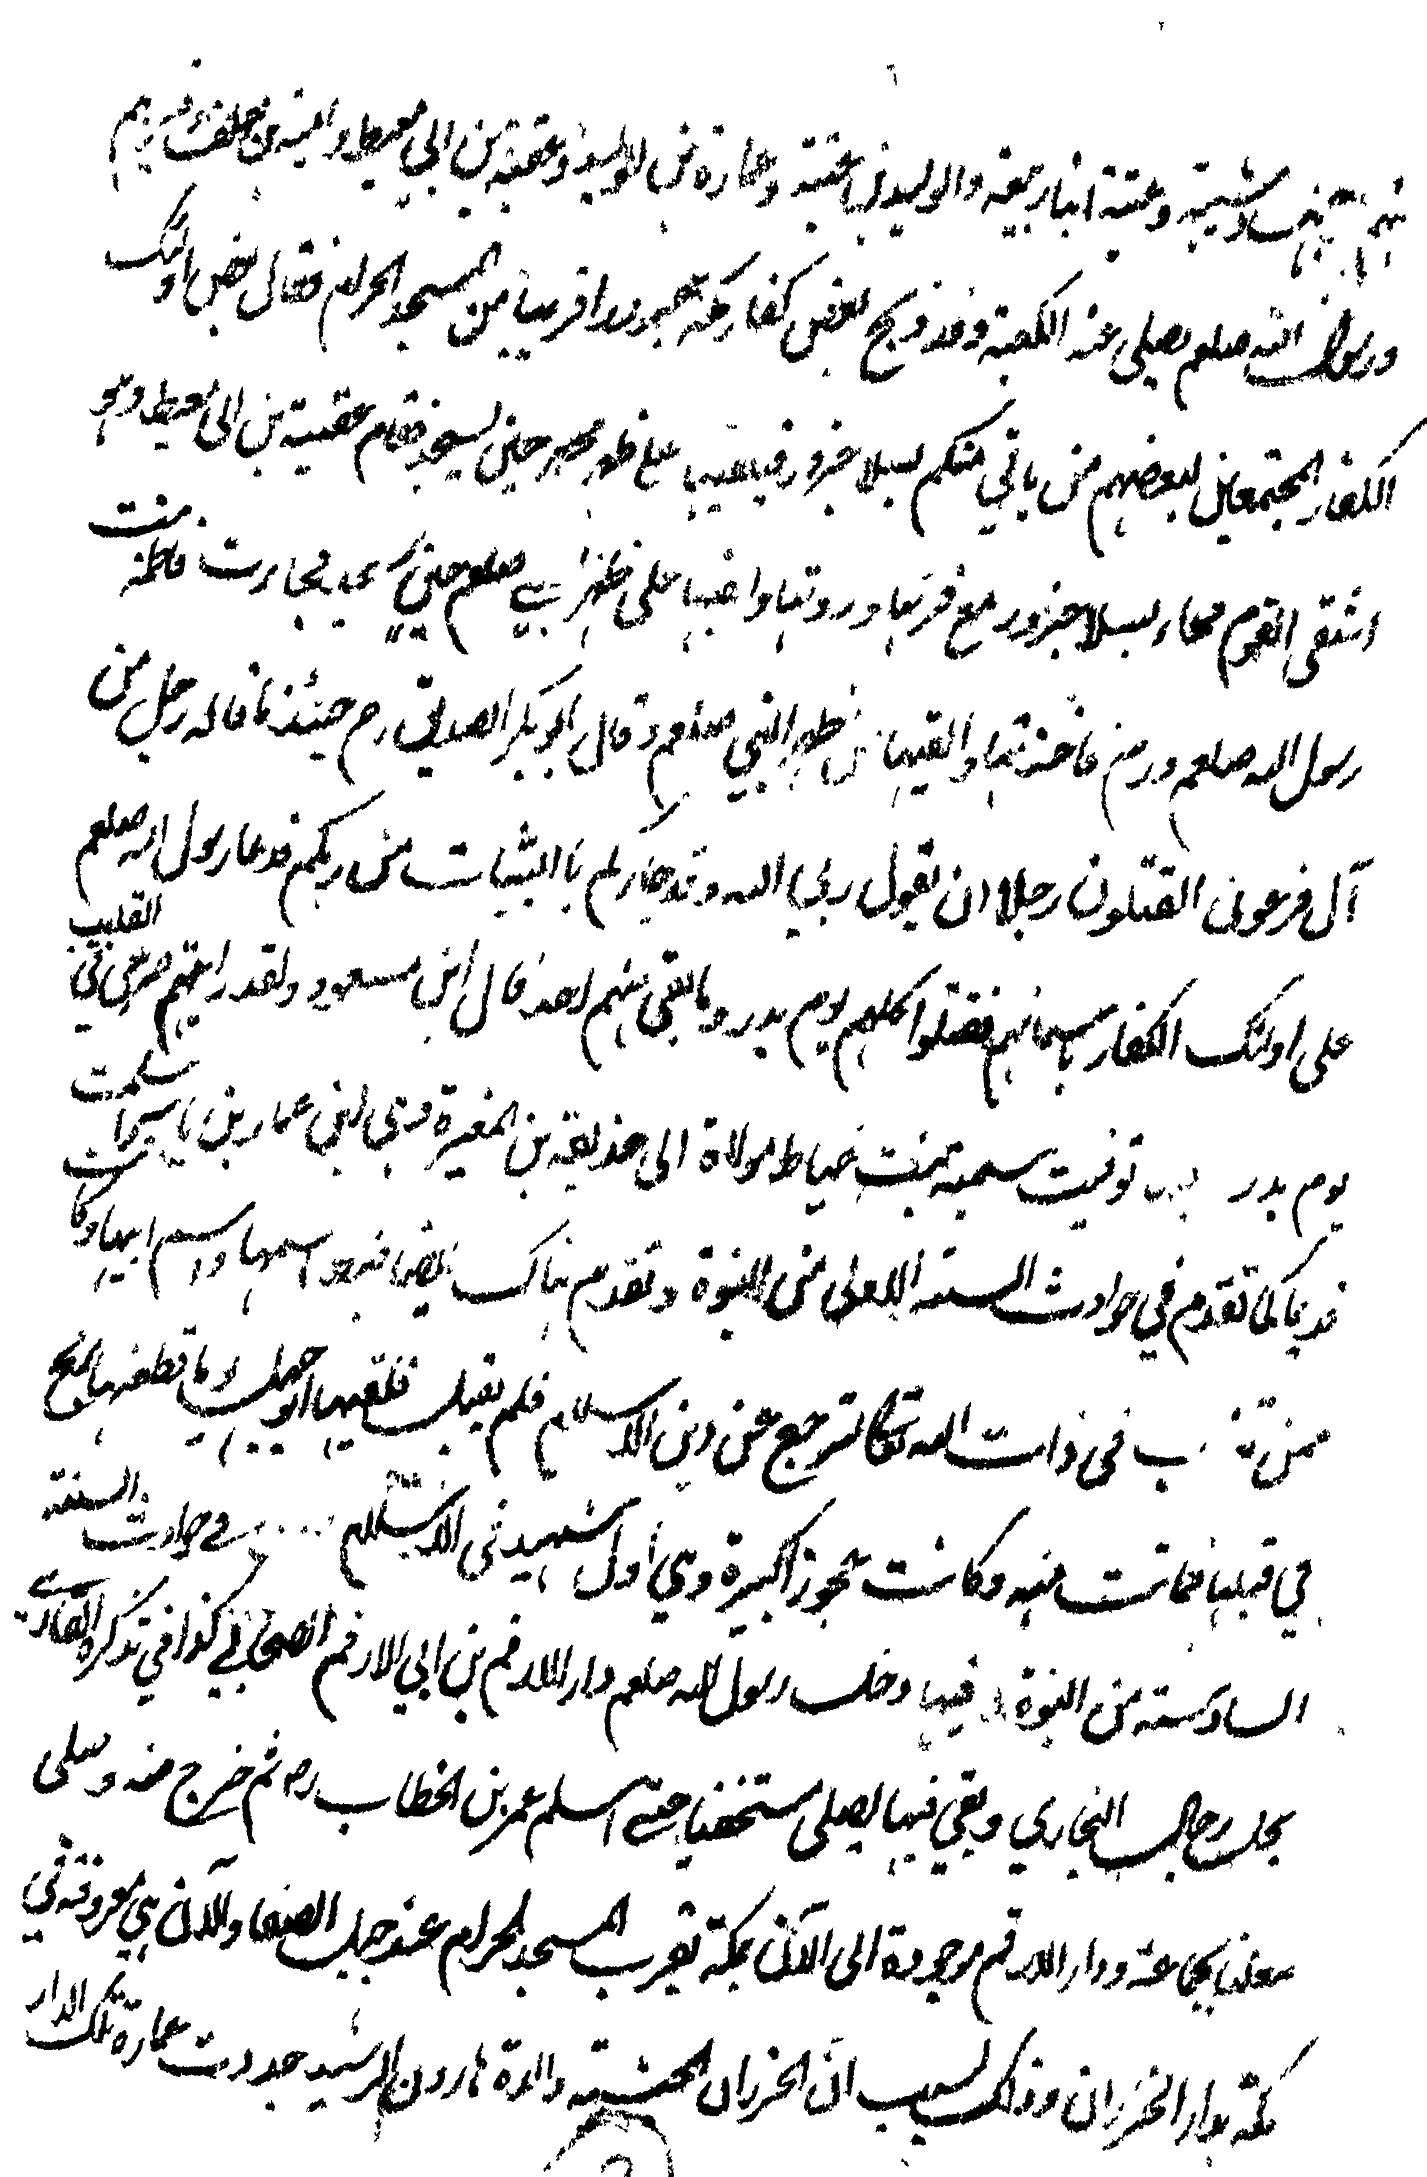 وشيبة وعتبة ابنا ربيعة والوليد بن عتبة وعمارة بن الوليد وعقبة بن ابي معيط وامية بن خلف وغيرهم
ورسول الله صلعم يصلي عند الكعبة وقد ذبح بعض كفار مكة جزورا قريبا من المسجد الحرام فقال بعض اولئك
الكفار المجتمعين لبعضهم من ياتي منكم بسلا جزور فيلقيها على ظهر محمد حين يسجد فقام عقبة بن ابي معيط وهو
اشقى القوم فجاء بسلا جزور مع فرثها وروثها والقيها على ظهر النبي صلعم حين سجد فجاءت فاطمة بنت
رسول الله صلعم ورضي فاخذتها والقيها من ظهر النبي صلعم وقال ابو بكر الصديق رض حينئذ ما قاله رجل من
آل فرعون اتقتلون رجلا ان يقول ربي الله وقد جاءكم بالبينات من ربكم فدعا رسول الله صلعم
على اولئك الكفار باسمائهم فقتلوا كلهم يوم بدر وما بقي منهم احد قال ابن مسعود ولقد رايتهم صرعى في القليب
يوم بدر توفيت سمية بنت خياط مولاة ابي حذيفة بن المغيرة وهي ام عمار بن ياسر اسلمت
قديما كما تقدم في حوادث السنة الاولى من النبوة وتقدم هناك ايضا ضبط اسمها واسم ابيها وكانت
ممن تعذب في ذات الله تعالى لترجع عن دين الاسلام فلم تفعل فلقيها ابو جهل يوما فطعنها برمح
في قبلها فماتت منه وكانت عجوزا كبيرة وهي اول شهيد في الاسلام في حوادث السنة
السادسة من النبوة فيها دخل رسول الله صلعم دار الارقم بن ابي الارقم الصحابي كذا في تذكرة القاري
بحل رجال البخاري وبقي فيها يصلي مستخفيا حتى اسلم عمر بن الخطاب رض ثم خرج منه وصلى
معلنا بجماعة ودار الارقم موجودة الى الآن بمكة بقرب المسجد الحرام عند جبل الصفا والآن هي معروفة في
مكة بدار الخيزران وذلك بسبب ان الخيزران الحبشية والدة هارون الرشيد جددت عمارة تلك الدار